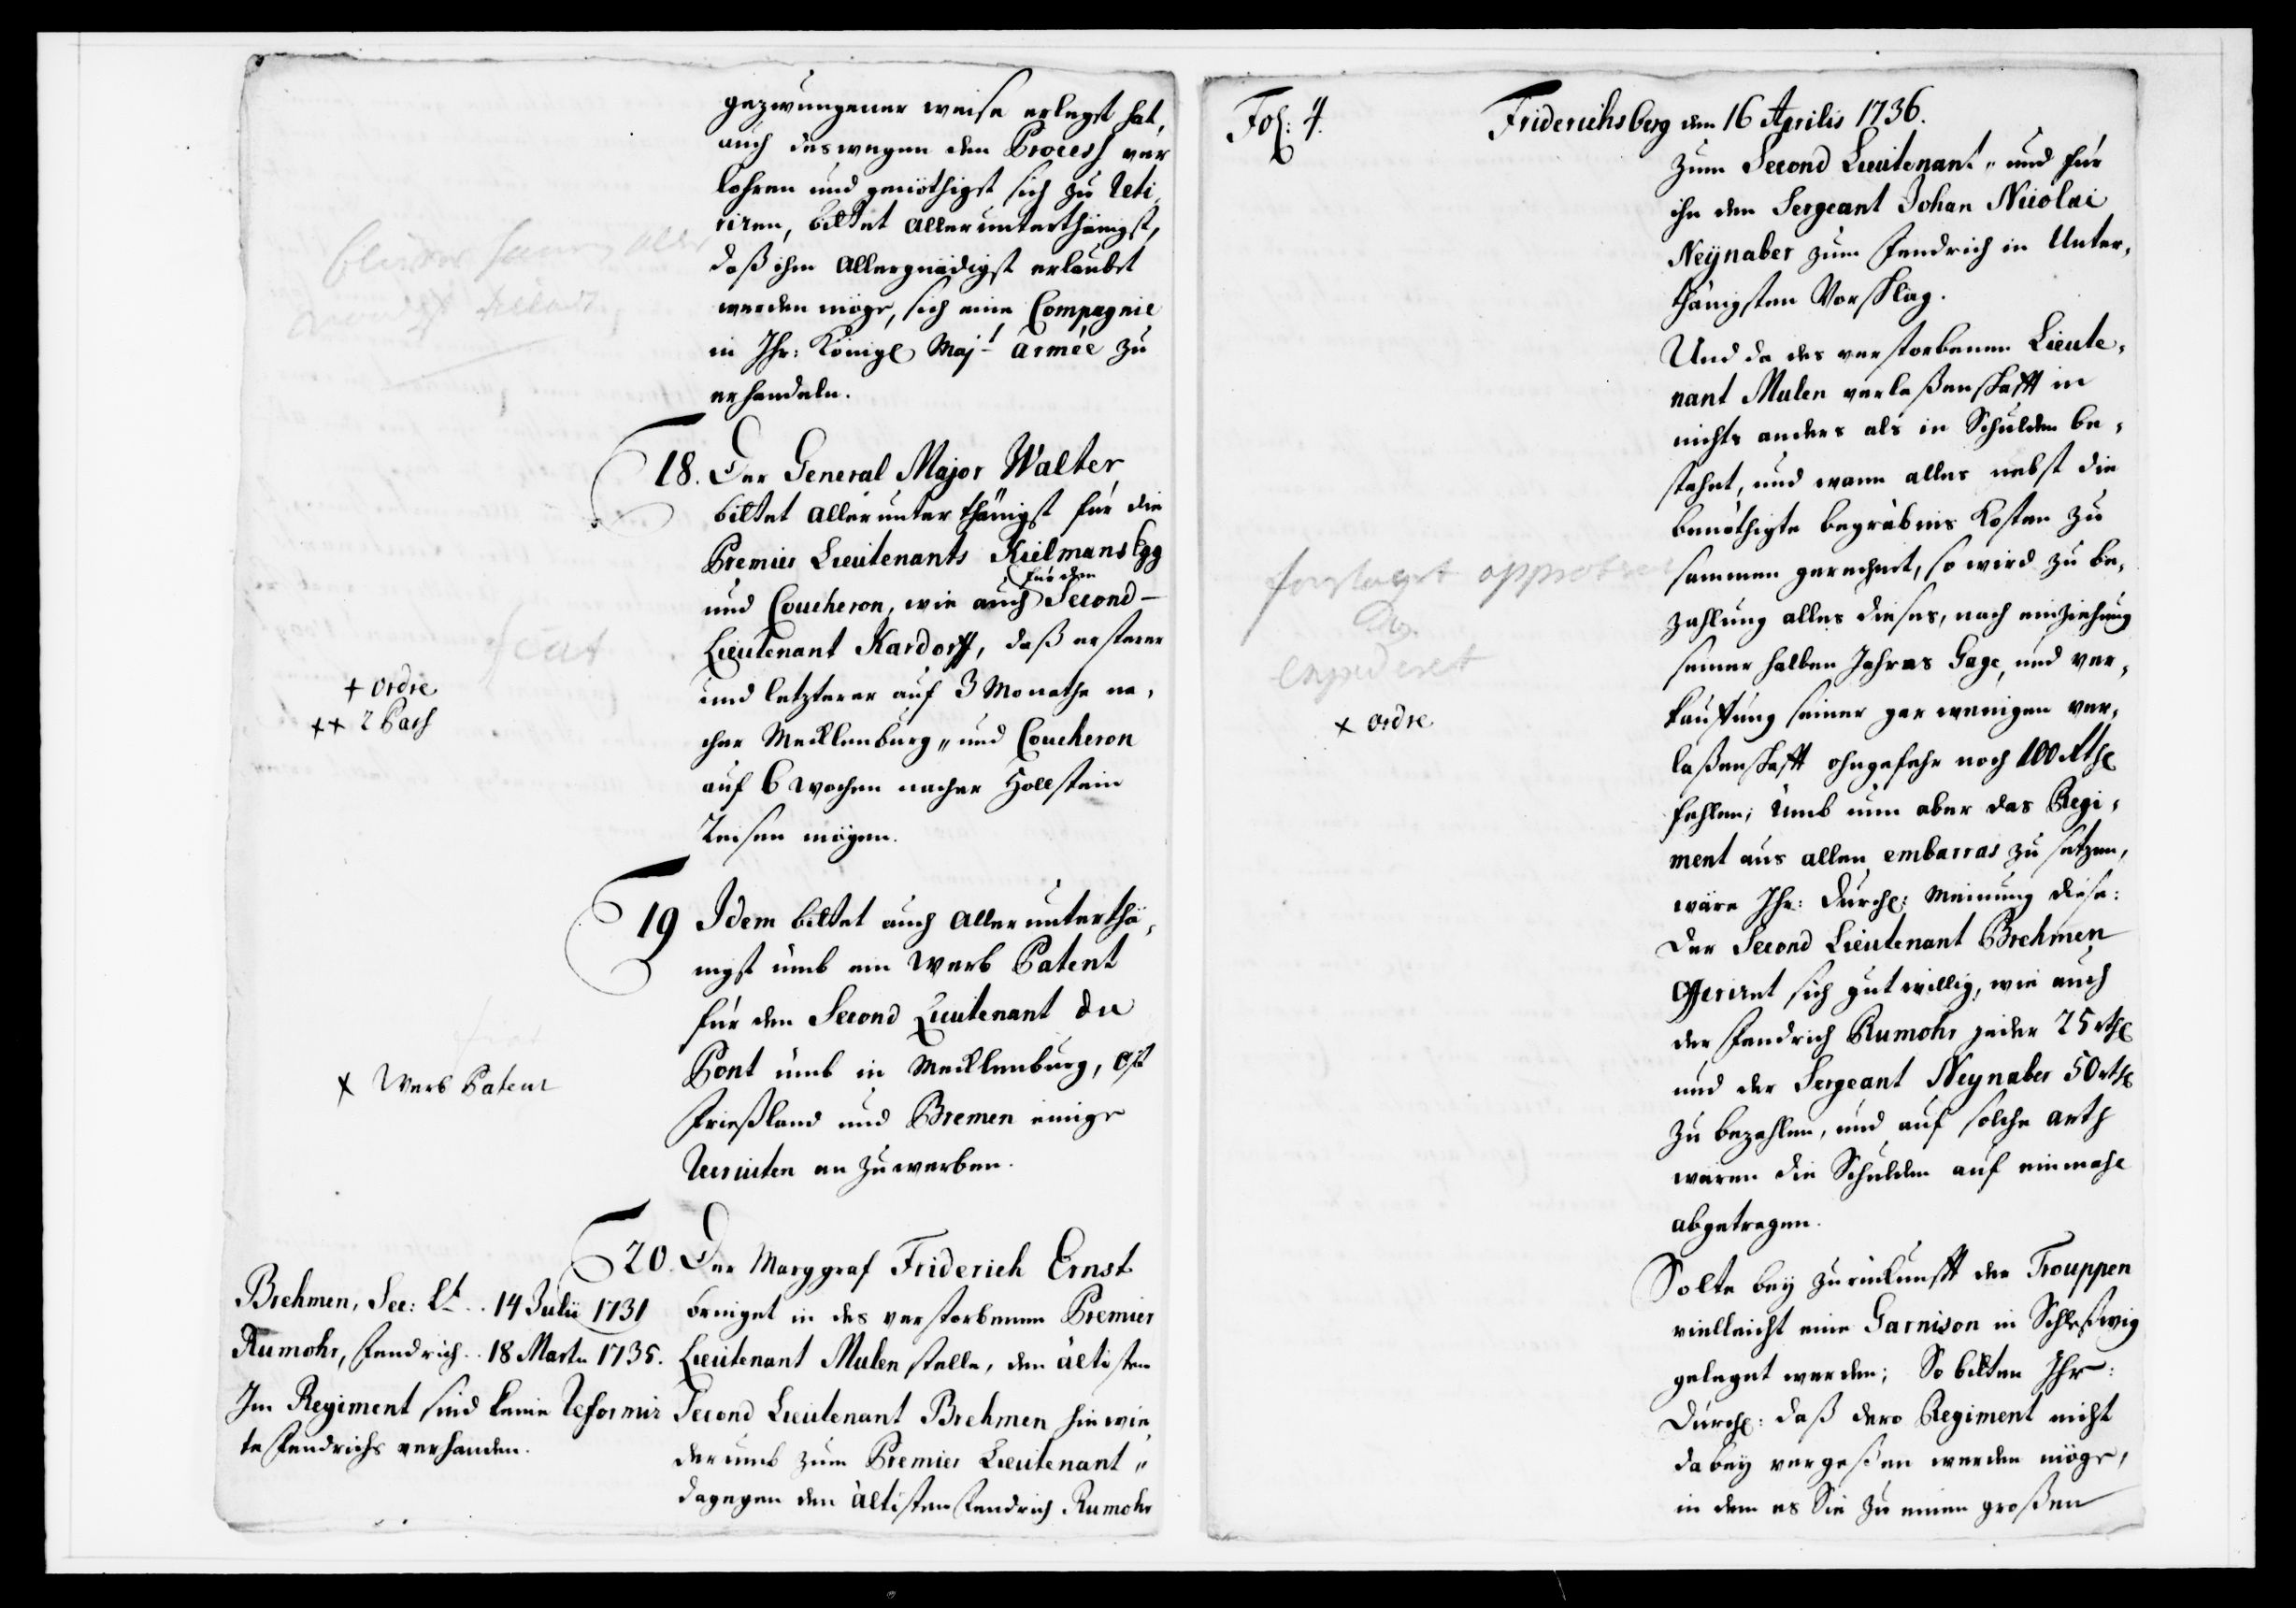 gezwungener weise erlegst hat,
auch deswegen den Process ver
lohren und genöthigst sich zu reti,
riren, bittet allerunterthänigst,
daß ihm allergnädigst erlaubt
werden möge, sich eine Compagnie
in Ihr: Königl Majt armée zu
erhandeln.
18. Der General Major Walter
bittet allerunterthänigst für die
Premier Lieutenants Kielmansegg
für den
und Coucheron, wie auch Second-
Lieutenant Kardorff, daß ersterer
fiat
und letzterer auf 3 Monathe na,
cher Mecklenburg " und Coucheron
auf 6 wochen nacher Hollstein
reisen mögen.
+ ordre
++ 2 Pass
19 Idem bittet auch allerunterthä,
nigst umb ein Werb Patent
für den Second Lieutenant du
Pont umb in Mecklenburg, Ost
Frießland und Bremen einige
recruten an zu werben.
fiat
x Werb Patent
20. Der Marggraf Friderich Ernst
bringet in des verstorbenen Premier
Lieutenant Mulen stelle, den ältisten
Second Lieutenant Brehmen hinwie,
derumb zum Premier Lieutenant "
dagegen den ältisten Fendrich Rumohr
Brehmen, Sec: Lt .. 14 Julii 1731
Rumohr, Fendrich .. 18 Marty 1735.
Im Regiment sind keine reformir
te Fendrichs verhanden.
Fol: 4.
Friderichsberg den 16 Aprilis 1736.
zum Second Lieutenant " und für
ihn den Sergeant Johan Nicolai
Neynaber zum Fendrich in Unter,
thänigsten Vorschlag.
Und da des verstorbenen Lieute,
nant Mulen verlaßenschafft in
nichts anders als in Schulden be,
stehet, und wann alles nebst die
benöthigte begräbnis Kosten zu
sammen gerechnet, so wird zu be,
zahlung alles dieses, nach einziehung
seiner halben Jahres Gage, und ver,
kauffung seiner gar wenigen ver,
laßenschafft ohngefehr noch 100 Rthl
fehlen; umb nun aber das Regi,
ment aus allen embarras zu setzen,
wäre Ihr: Durchl: Meinung diese:
Der Second Lieutenant Brehmen
offeriret sich gutwillig, wie auch
der Fendrich Rumohr jeder 25 rthl
und der Sergeant Neynaber 50 rthl
zu bezahlen, und auf solche arth
wären die Schulden auf einmahl
abgetragen.
Solte bey zurückunfft der Trouppen
vielleicht eine Garnison in Schleßwig
geleget werden; So bitten Ihr:
Durchl: daß dero Regiment nicht
dabey vergeßen werden möge,
in dem es Sie zu einen großen
forslaget approberet
expederet
x ordre